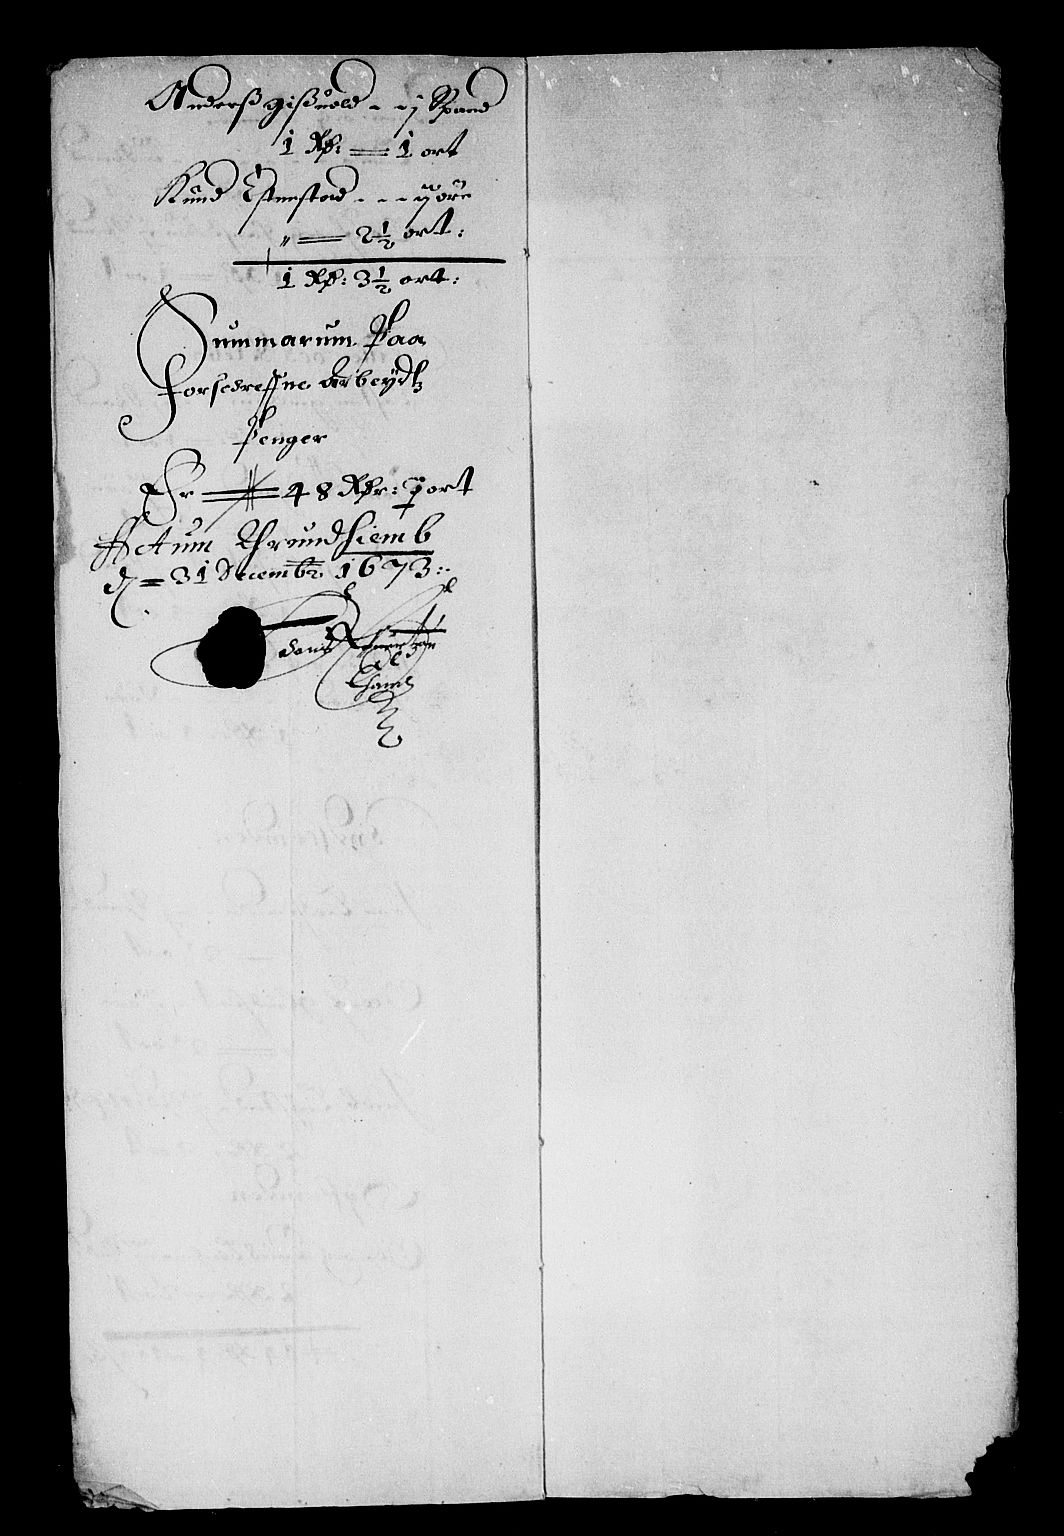 Anderß gißuold - - j Spand
1 Rß: == 1 ort
Knud Estenstad - - - ij øre
" == 2½ ort:
1 Rß: 3½ ort:
Summarum Paa
forschreffne Arbeydtz
Penger
Er == 48 Rßr: ort
Actum Thrundhiemb
d = 31 Decembr 1673: